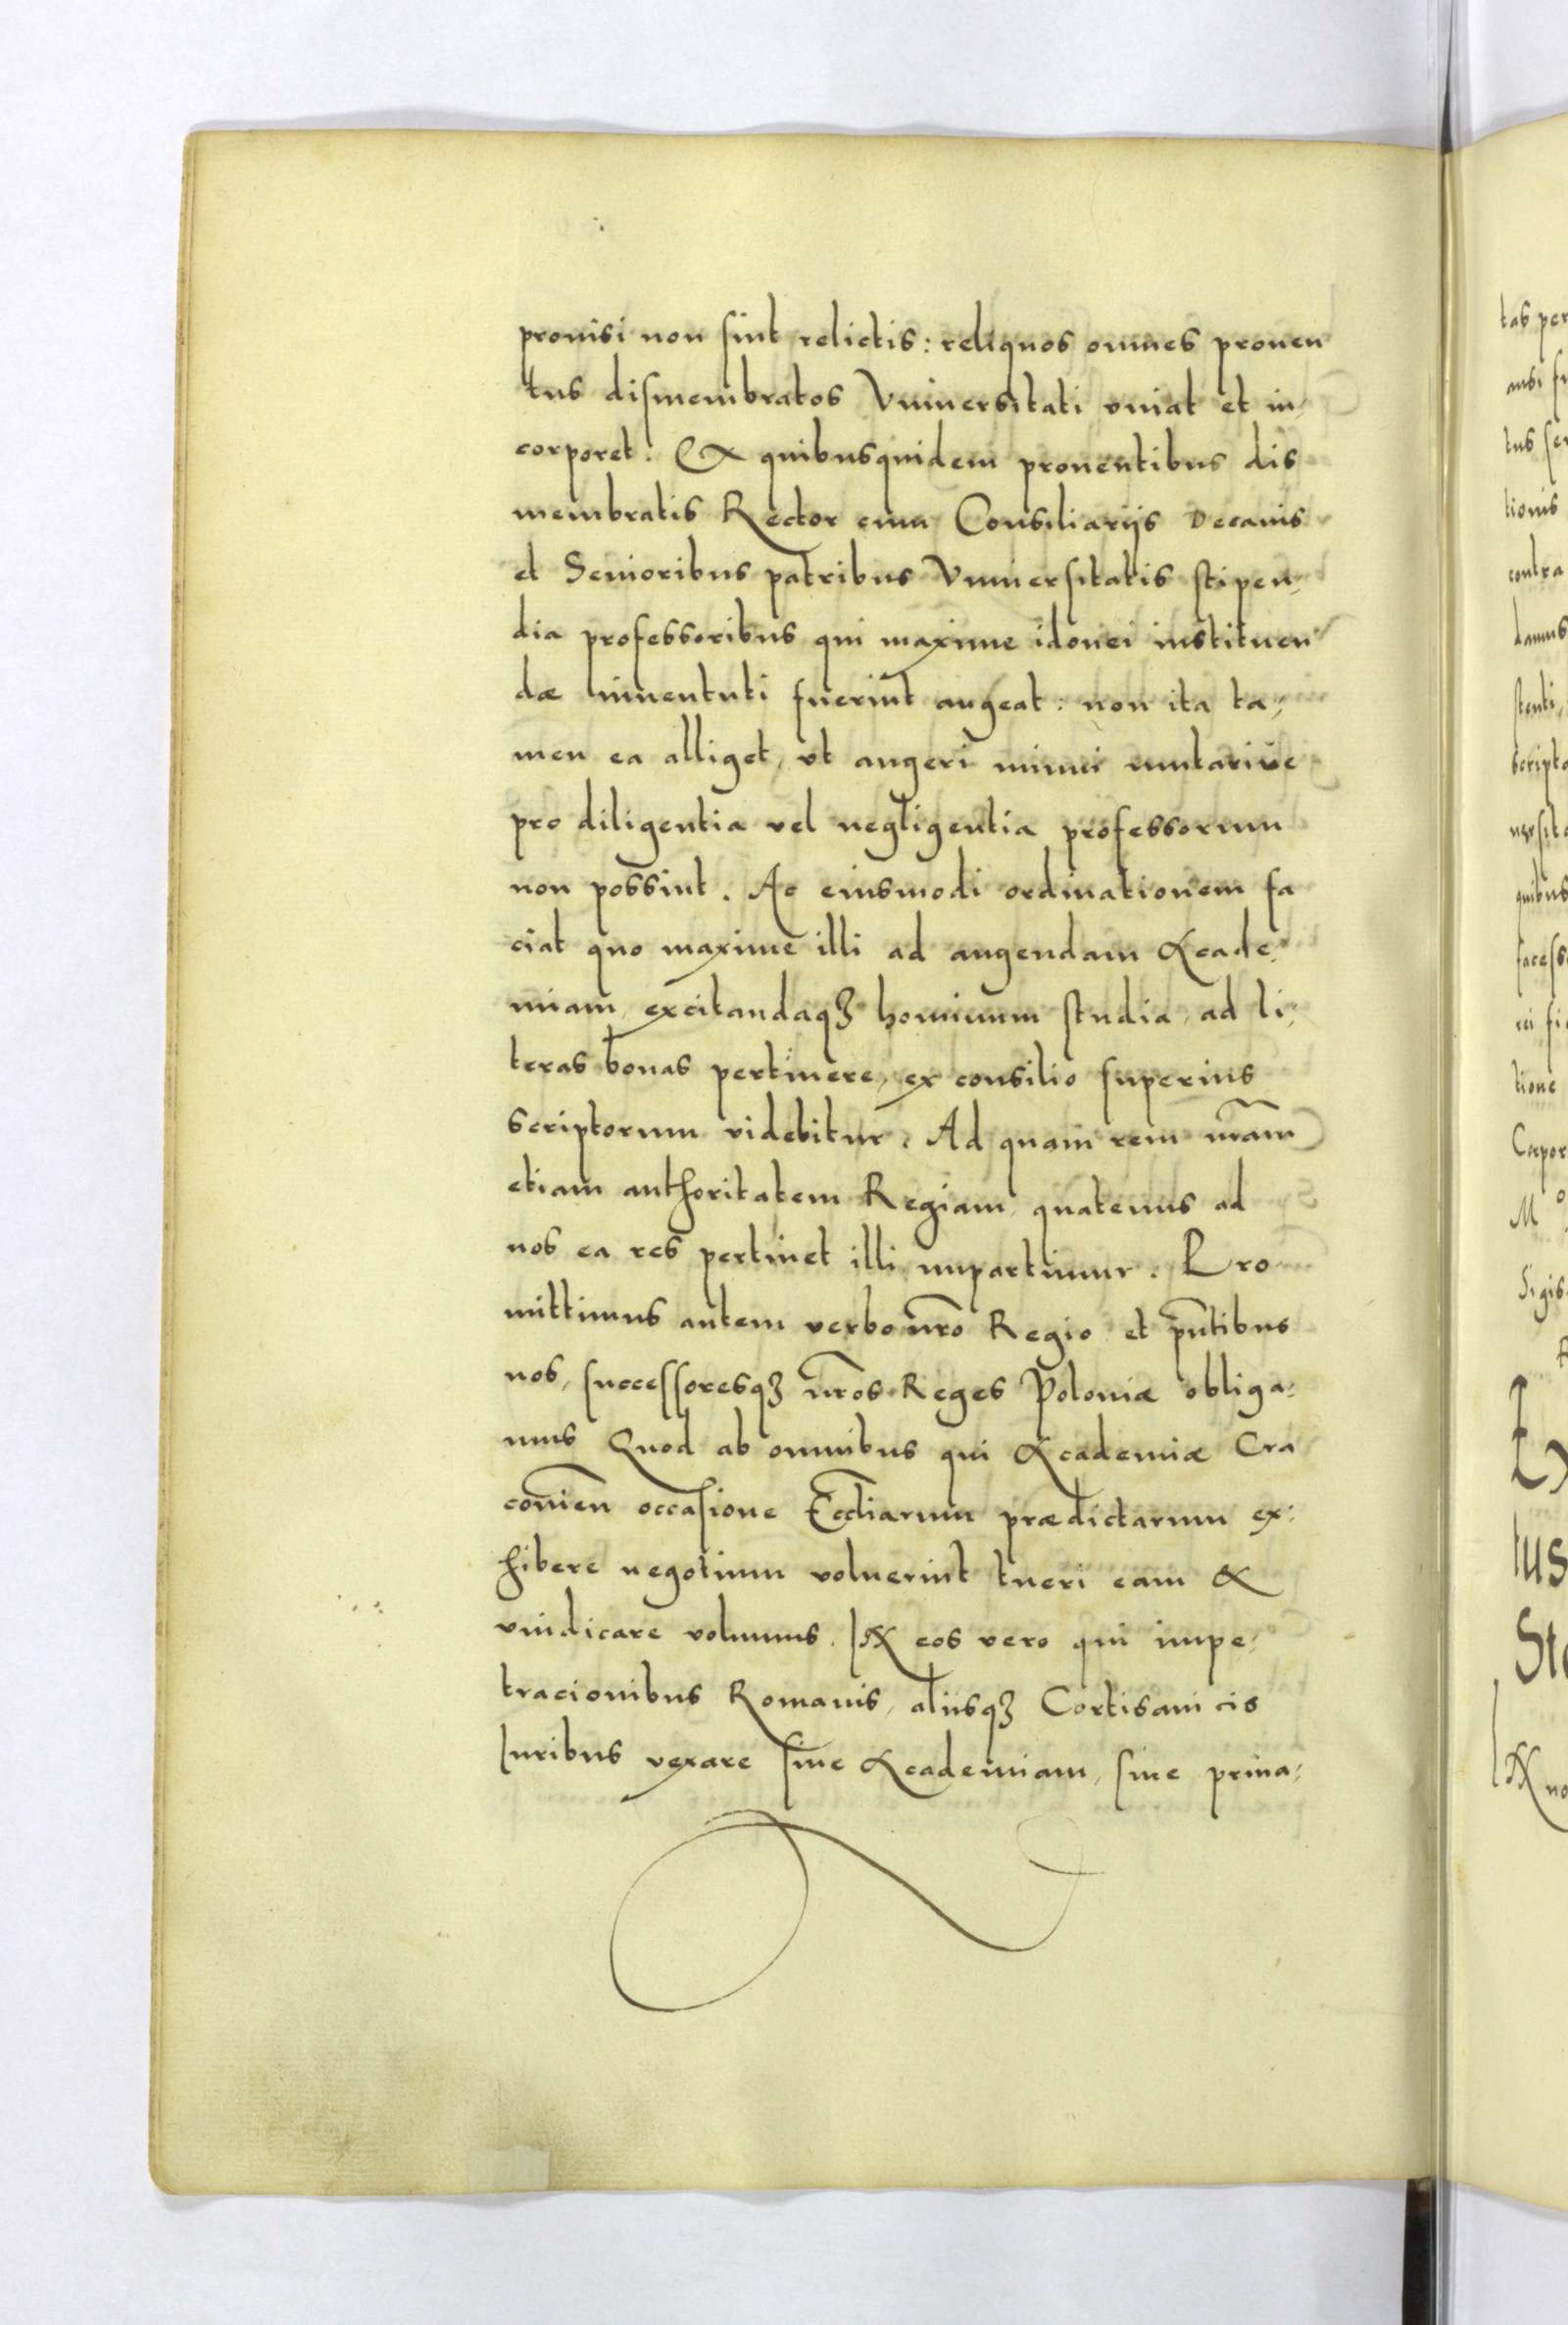 prouisi non sint relictis: reliquos omnes prouen
tus dismembratos Vniuersitati vniat et in-
corporet. Ex quibusquidem prouentibus dis
membratis Rector cum Consiliarijs Decanis
et Senioribus patribus Vniuersitatis stipen-
dia professoribus qui maxime idonei instituen
dæ iuuentuti fuerint augeat: non ita ta-
men ea alliget, vt augeri minui mutariue
pro diligentia vel negligentia professorum
non possint. Ac eiusmodi ordinationem fa
ciat quo maxime illi ad augendam Acade-
miam, excitandaqꝫ hominum studia, ad li-
teras bonas pertinere, ex consilio superius
scriptorum videbitur. Ad quam rem nr̃am
etiam authoritatem Regiam, quatenus ad
nos ea res pertinet illi impartimur. Pro
mittimus autem verbo nr̃o Regio et pñtibus
nos, successoresqꝫ nr̃os Reges Poloniæ obliga-
mus Quod ab omnibus qui Academiæ Cra
couieñ occasione Eccl̃iarum prædictarum ex-
hibere negotium voluerint tueri eam &
vindicare volumus. IN eos vero qui impe-
tracionibus Romanis, alijsqꝫ Cortisanicis
Iuribus vexare siue Academiam, siue priua-
tas per
tus
tionis
contra
scripto
quibus
tione
M
Sigis
Ex
tus
IN no